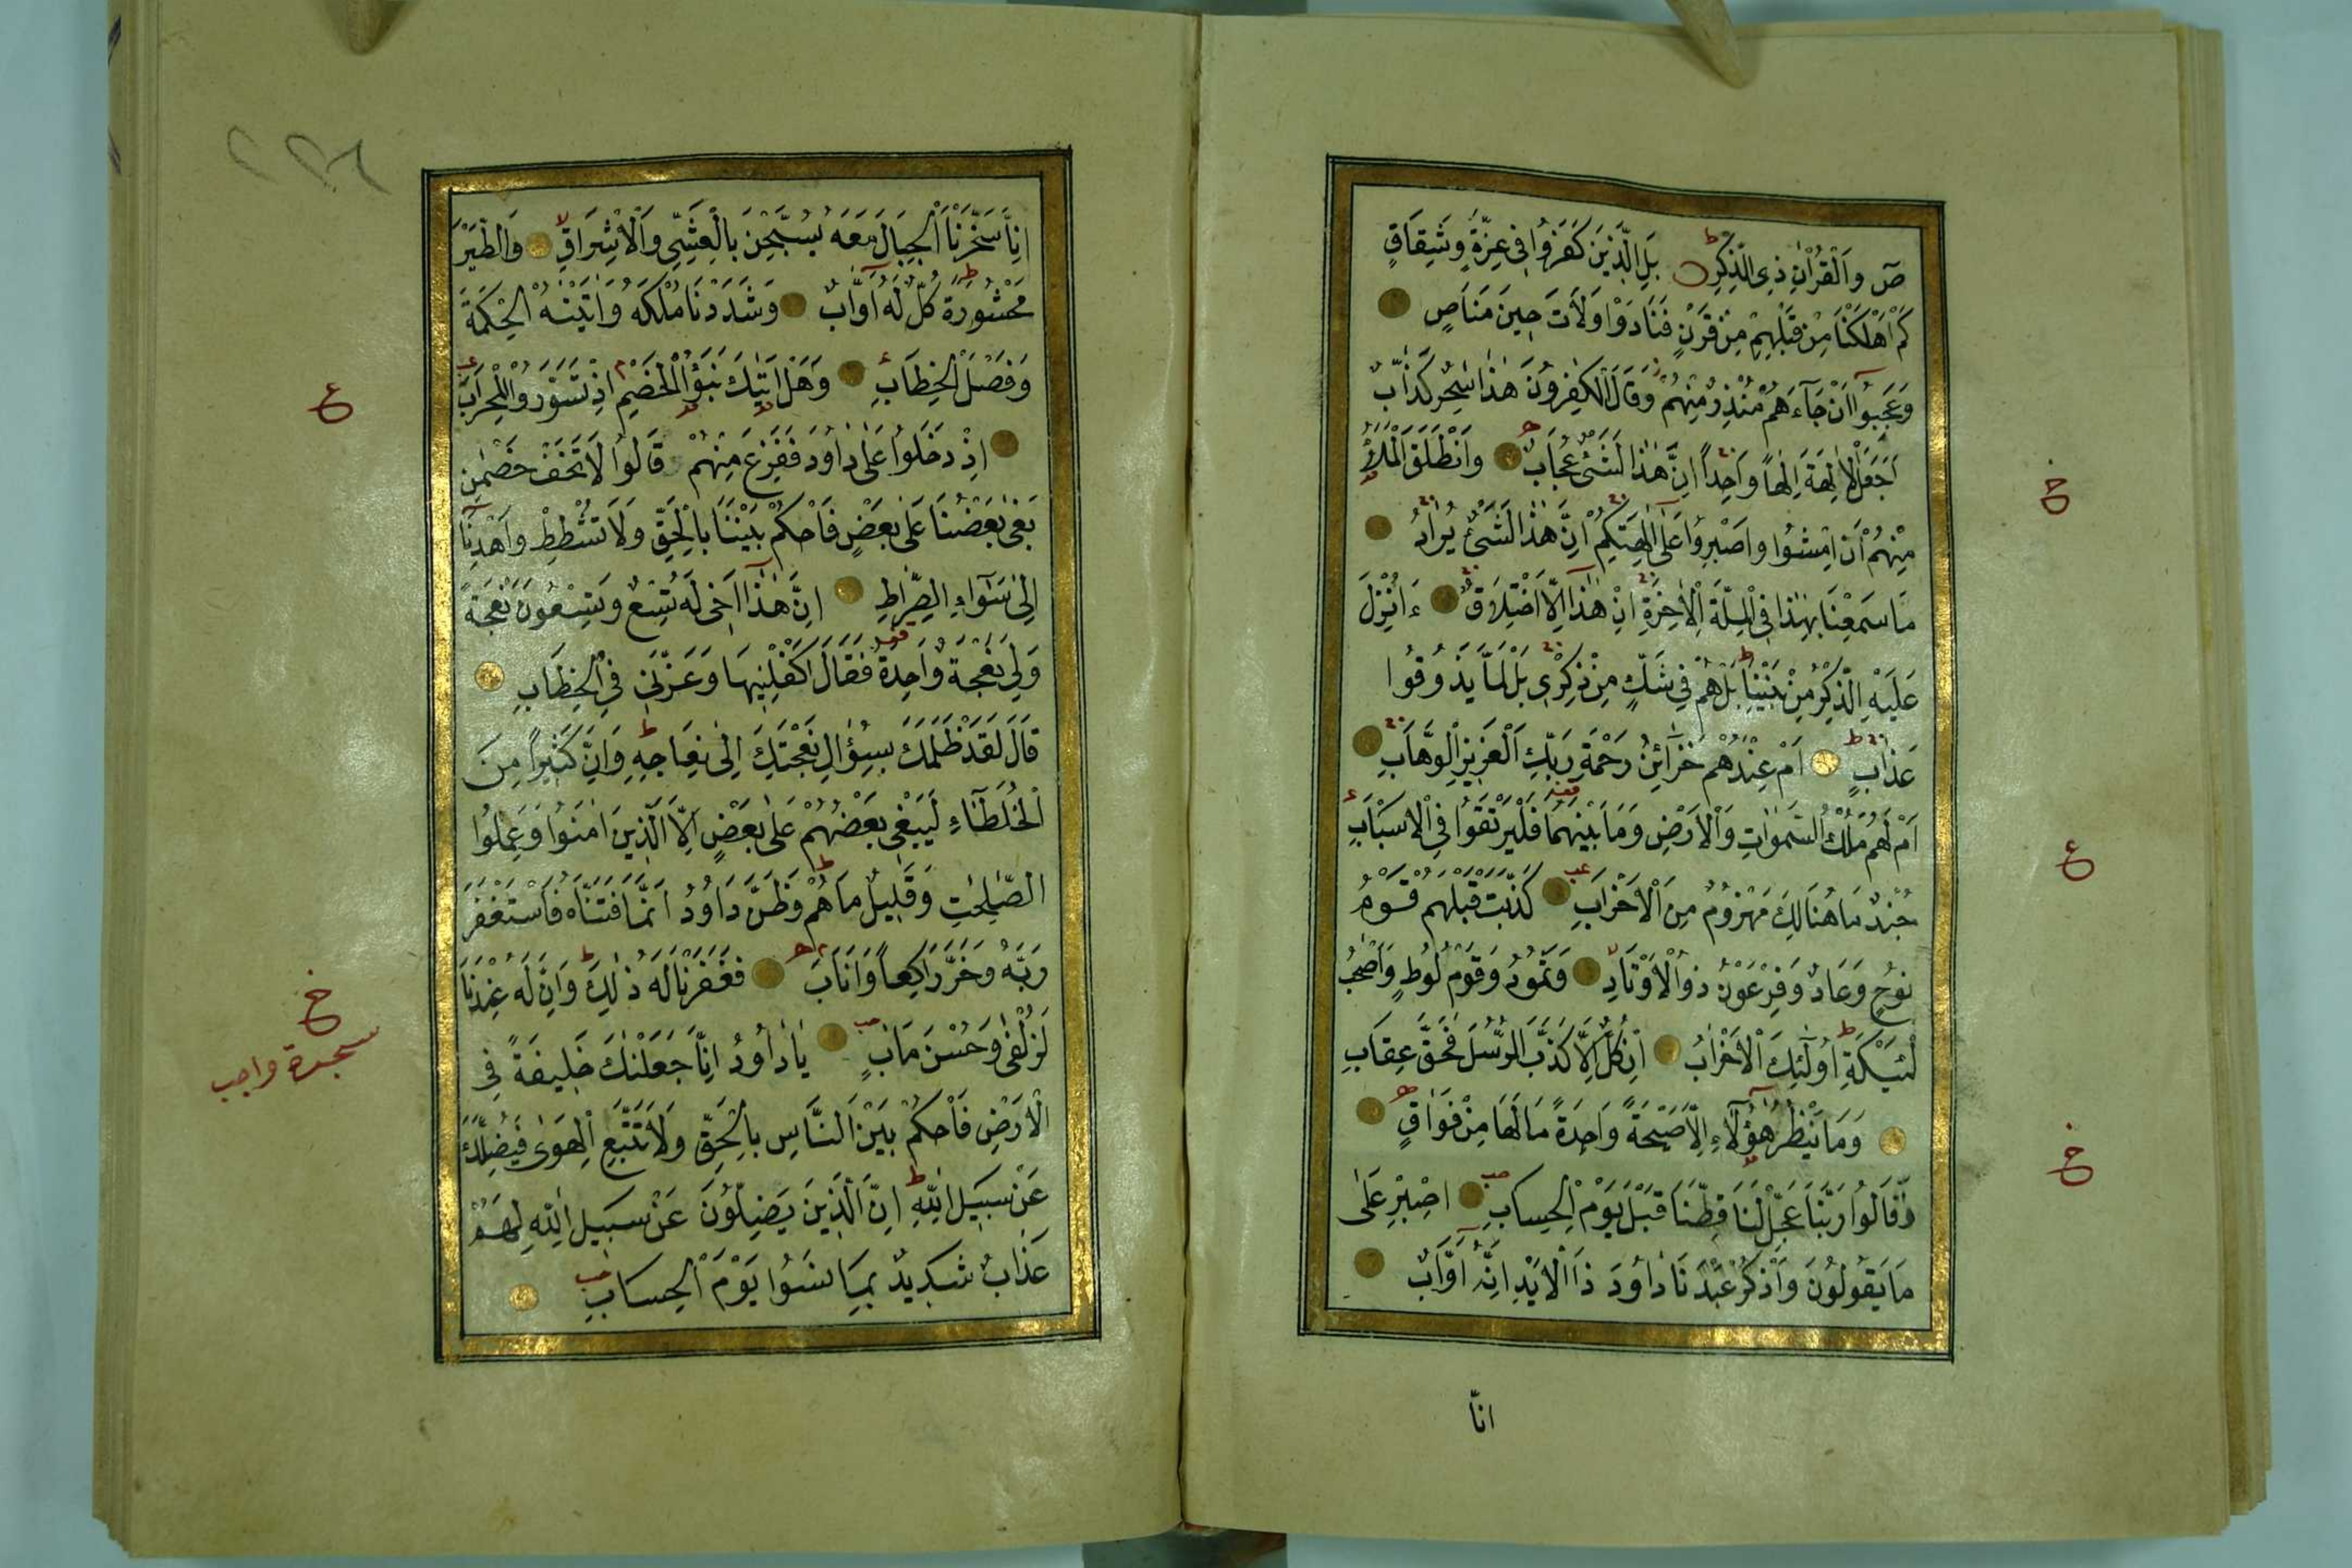 صٓ وَالْقُرْاٰنِ ذِى الذِّكْرِ بَلِ الَّذِينَ كَفَرُوا فِى عِزَّةٍ وَشِقَاقٍ
كَمْ اَهْلَكْنَا مِنْ قَبْلِهِمْ مِنْ قَرْنٍ فَنَادَوْا وَلَاتَ حِينَ مَنَاصٍ
وَعَجِبُوٓا اَنْ جَآءَهُمْ مُنْذِرٌ مِنْهُمْ وَقَالَ الْكٰفِرُونَ هٰذَا سٰحِرٌ كَذَّابٌ
اَجَعَلَ الْاٰلِهَةَ اِلٰهاً وَاحِداً اِنَّ هٰذَا لَشَىْءٌ عُجَابٌ وَانْطَلَقَ الْمَلَأُ
مِنْهُمْ اَنِ امْشُوا وَاصْبِرُوا عَلٰٓى اٰلِهَتِكُمْ اِنَّ هٰذَا لَشَىْءٌ يُرَادُ
مَا سَمِعْنَا بِهٰذَا فِى الْمِلَّةِ الْاٰخِرَةِ اِنْ هٰذَٓا اِلَّا اخْتِلَاقٌ ءَاُنْزِلَ
عَلَيْهِ الذِّكْرُ مِنْ بَيْنِنَا بَلْ هُمْ فِى شَكٍّ مِنْ ذِكْرِى بَلْ لَمَّا يَذُوقُوا
عَذَابِ اَمْ عِنْدَهُمْ خَزَآئِنُ رَحْمَةِ رَبِّكَ الْعَزِيزِ الْوَهَّابِ
اَمْ لَهُمْ مُلْكُ السَّمٰوَاتِ وَالْاَرْضِ وَمَا بَيْنَهُمَا فَلْيَرْتَقُوا فِى الْاَسْبَابِ
جُنْدٌ مَا هُنَالِكَ مَهْزُومٌ مِنَ الْاَحْزَابِ كَذَّبَتْ قَبْلَهُمْ قَوْمُ
نُوحٍ وَعَادٌ وَفِرْعَوْنُ ذُو الْاَوْتَادِ وَثَمُودُ وَقَوْمُ لُوطٍ وَاَصْحٰبُ
لْئَيْكَةِ اُولٰٓئِكَ الْاَحْزَابُ اِنْ كُلٌّ اِلَّا كَذَّبَ الرُّسُلَ فَحَقَّ عِقَابِ
وَمَا يَنْظُرُ هٰٓؤُلَآءِ اِلَّا صَيْحَةً وَاحِدَةً مَا لَهَا مِنْ فَوَاقٍ
وَقَالُوا رَبَّنَا عَجِّلْ لَنَا قِطَّنَا قَبْلَ يَوْمِ الْحِسَابِ اِصْبِرْ عَلٰى
مَا يَقُولُونَ وَاذْكُرْ عَبْدَنَا دَاوُدَ ذَا الْاَيْدِ اِنَّهُٓ اَوَّابٌ
انّا
خ
ع
خ
٢٢٦
اِنَّا سَخَّرْنَا الْجِبَالَ مَعَهُ يُسَبِّحْنَ بِالْعَشِىِّ وَالْاِشْرَاقِ وَالطَّيْرَ
مَحْشُورَةً كُلٌّ لَهُٓ اَوَّابٌ وَشَدَدْنَا مُلْكَهُ وَاٰتَيْنٰهُ الْحِكْمَةَ
وَفَصْلَ الْخِطَابِ وَهَلْ اَتٰيكَ نَبَؤُا الْخَصْمِ اِذْ تَسَوَّرُوا الْمِحْرَابَ
اِذْ دَخَلُوا عَلٰى دَاوُدَ فَفَزِعَ مِنْهُمْ قَالُوا لَا تَخَفْ خَصْمٰنِ
بَغٰى بَعْضُنَا عَلٰى بَعْضٍ فَاحْكُمْ بَيْنَنَا بِالْحَقِّ وَلَا تُشْطِطْ وَاهْدِنَٓا
اِلٰى سَوَآءِ الصِّرَاطِ اِنَّ هٰذَٓا اَخِى لَهُ تِسْعٌ وَتِسْعُونَ نَعْجَةً
وَلِىَ نَعْجَةٌ وَاحِدَةٌ فَقَالَ اَكْفِلْنِيهَا وَعَزَّنِى فِى الْخِطَابِ
قَالَ لَقَدْ ظَلَمَكَ بِسُؤَالِ نَعْجَتِكَ اِلٰى نِعَاجِهِ وَاِنَّ كَثِيراً مِنَ
الْخُلَطَآءِ لَيَبْغِى بَعْضُهُمْ عَلٰى بَعْضٍ اِلَّا الَّذِينَ اٰمَنُوا وَعَمِلُوا
الصّٰلِحٰتِ وَقَلِيلٌ مَا هُمْ وَظَنَّ دَاوُدُ اَنَّمَا فَتَنَّاهُ فَاسْتَغْفَرَ
رَبَّهُ وَخَرَّ رَاكِعاً وَاَنَابَ فَغَفَرْنَا لَهُ ذٰلِكَ وَاِنَّ لَهُ عِنْدَنَا
لَزُلْفٰى وَحُسْنَ مَاٰبٍ يَا دَاوُدُ اِنَّا جَعَلْنٰكَ خَلِيفَةً فِى
الْاَرْضِ فَاحْكُمْ بَيْنَ النَّاسِ بِالْحَقِّ وَلَا تَتَّبِعِ الْهَوٰى فَيُضِلَّكَ
عَنْ سَبِيلِ اللّٰهِ اِنَّ الَّذِينَ يَضِلُّونَ عَنْ سَبِيلِ اللّٰهِ لَهُمْ
عَذَابٌ شَدِيدٌ بِمَا نَسُوا يَوْمَ الْحِسَابِ
ع
خ
سجدة واجب